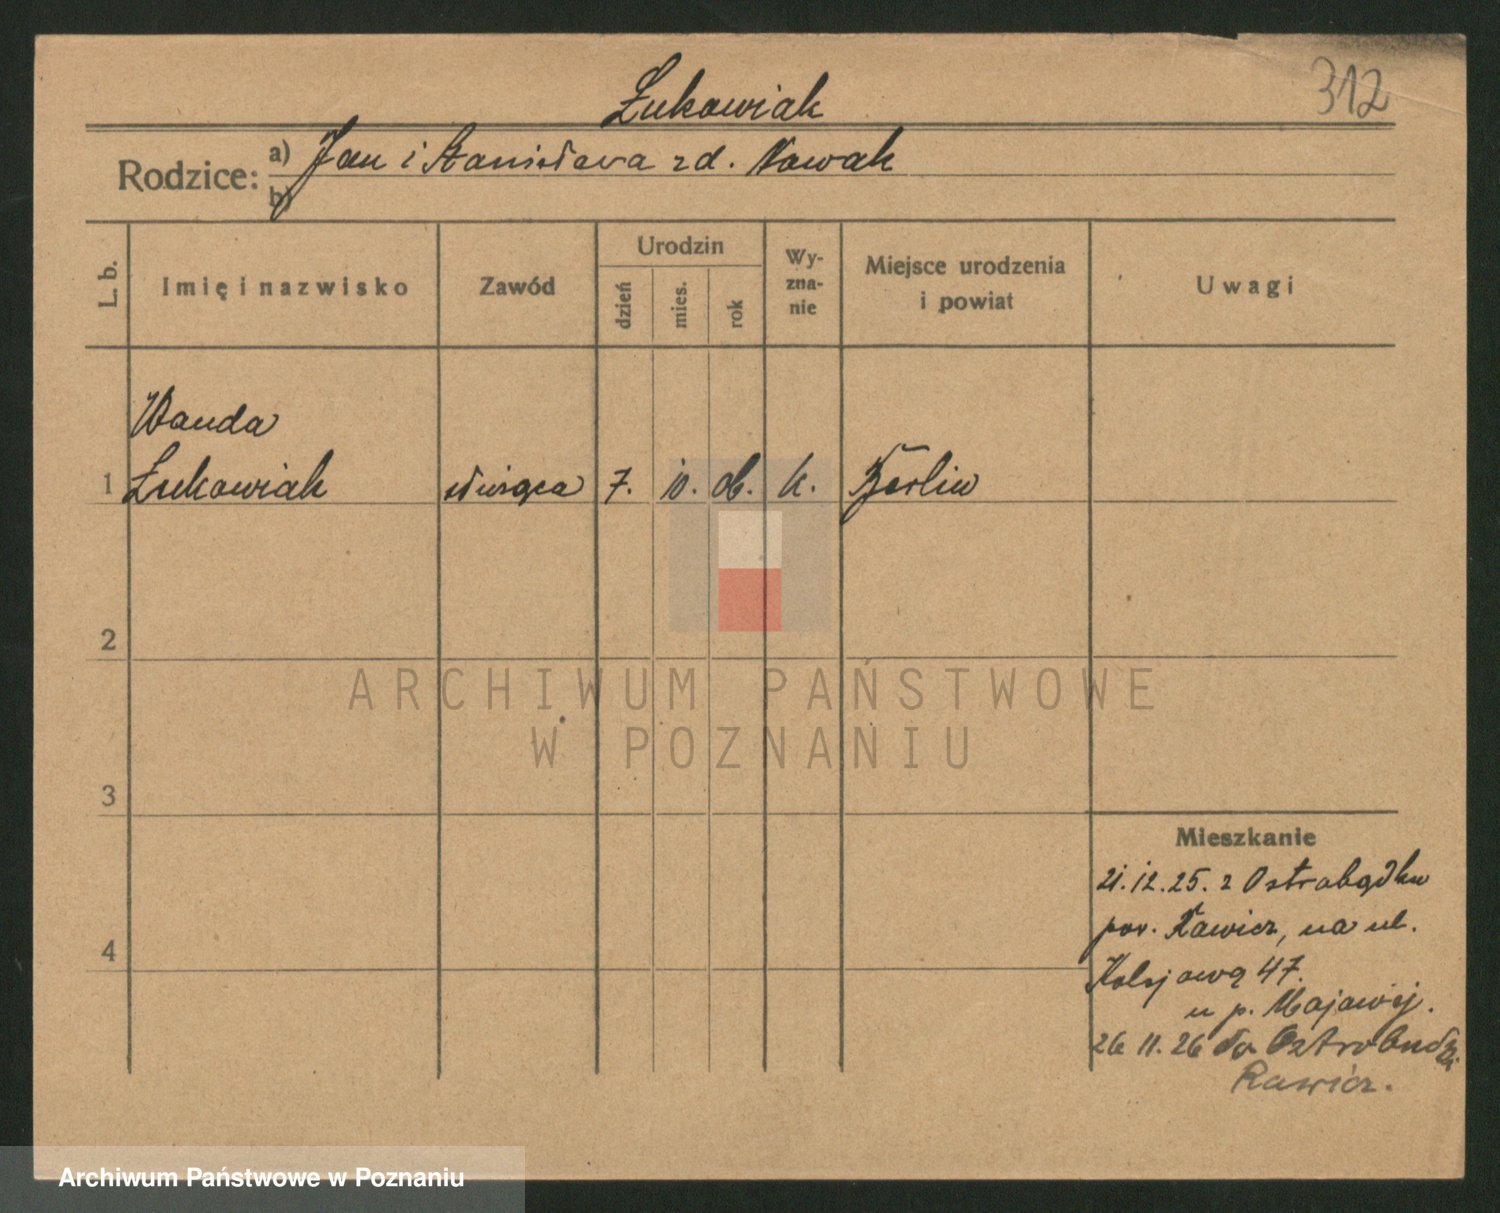 312
Łukowiak
Rodzice: a) Jan i Stanisława zd. Nowak
b)
L. b.
Imię i nazwisko
Zawód
Urodzin
dzień
mies.
rok
Wy-
zna-
nie
Miejsce urodzenia
i powiat
Uwagi
Wanda
1 Łukowiak służąca 7. 10. 06. k. Berlin
2
3
4
ARCHIWUM PAŃSTWOWE
W POZNANIU
Mieszkanie
21.12.25. z Ostrobądku
pow. Rawicz, na ul.
Kolejową 47.
u p. Majawej.
26 11. 26 do Ostrobudki
Rawicz.
Archiwum Państwowe w Poznaniu